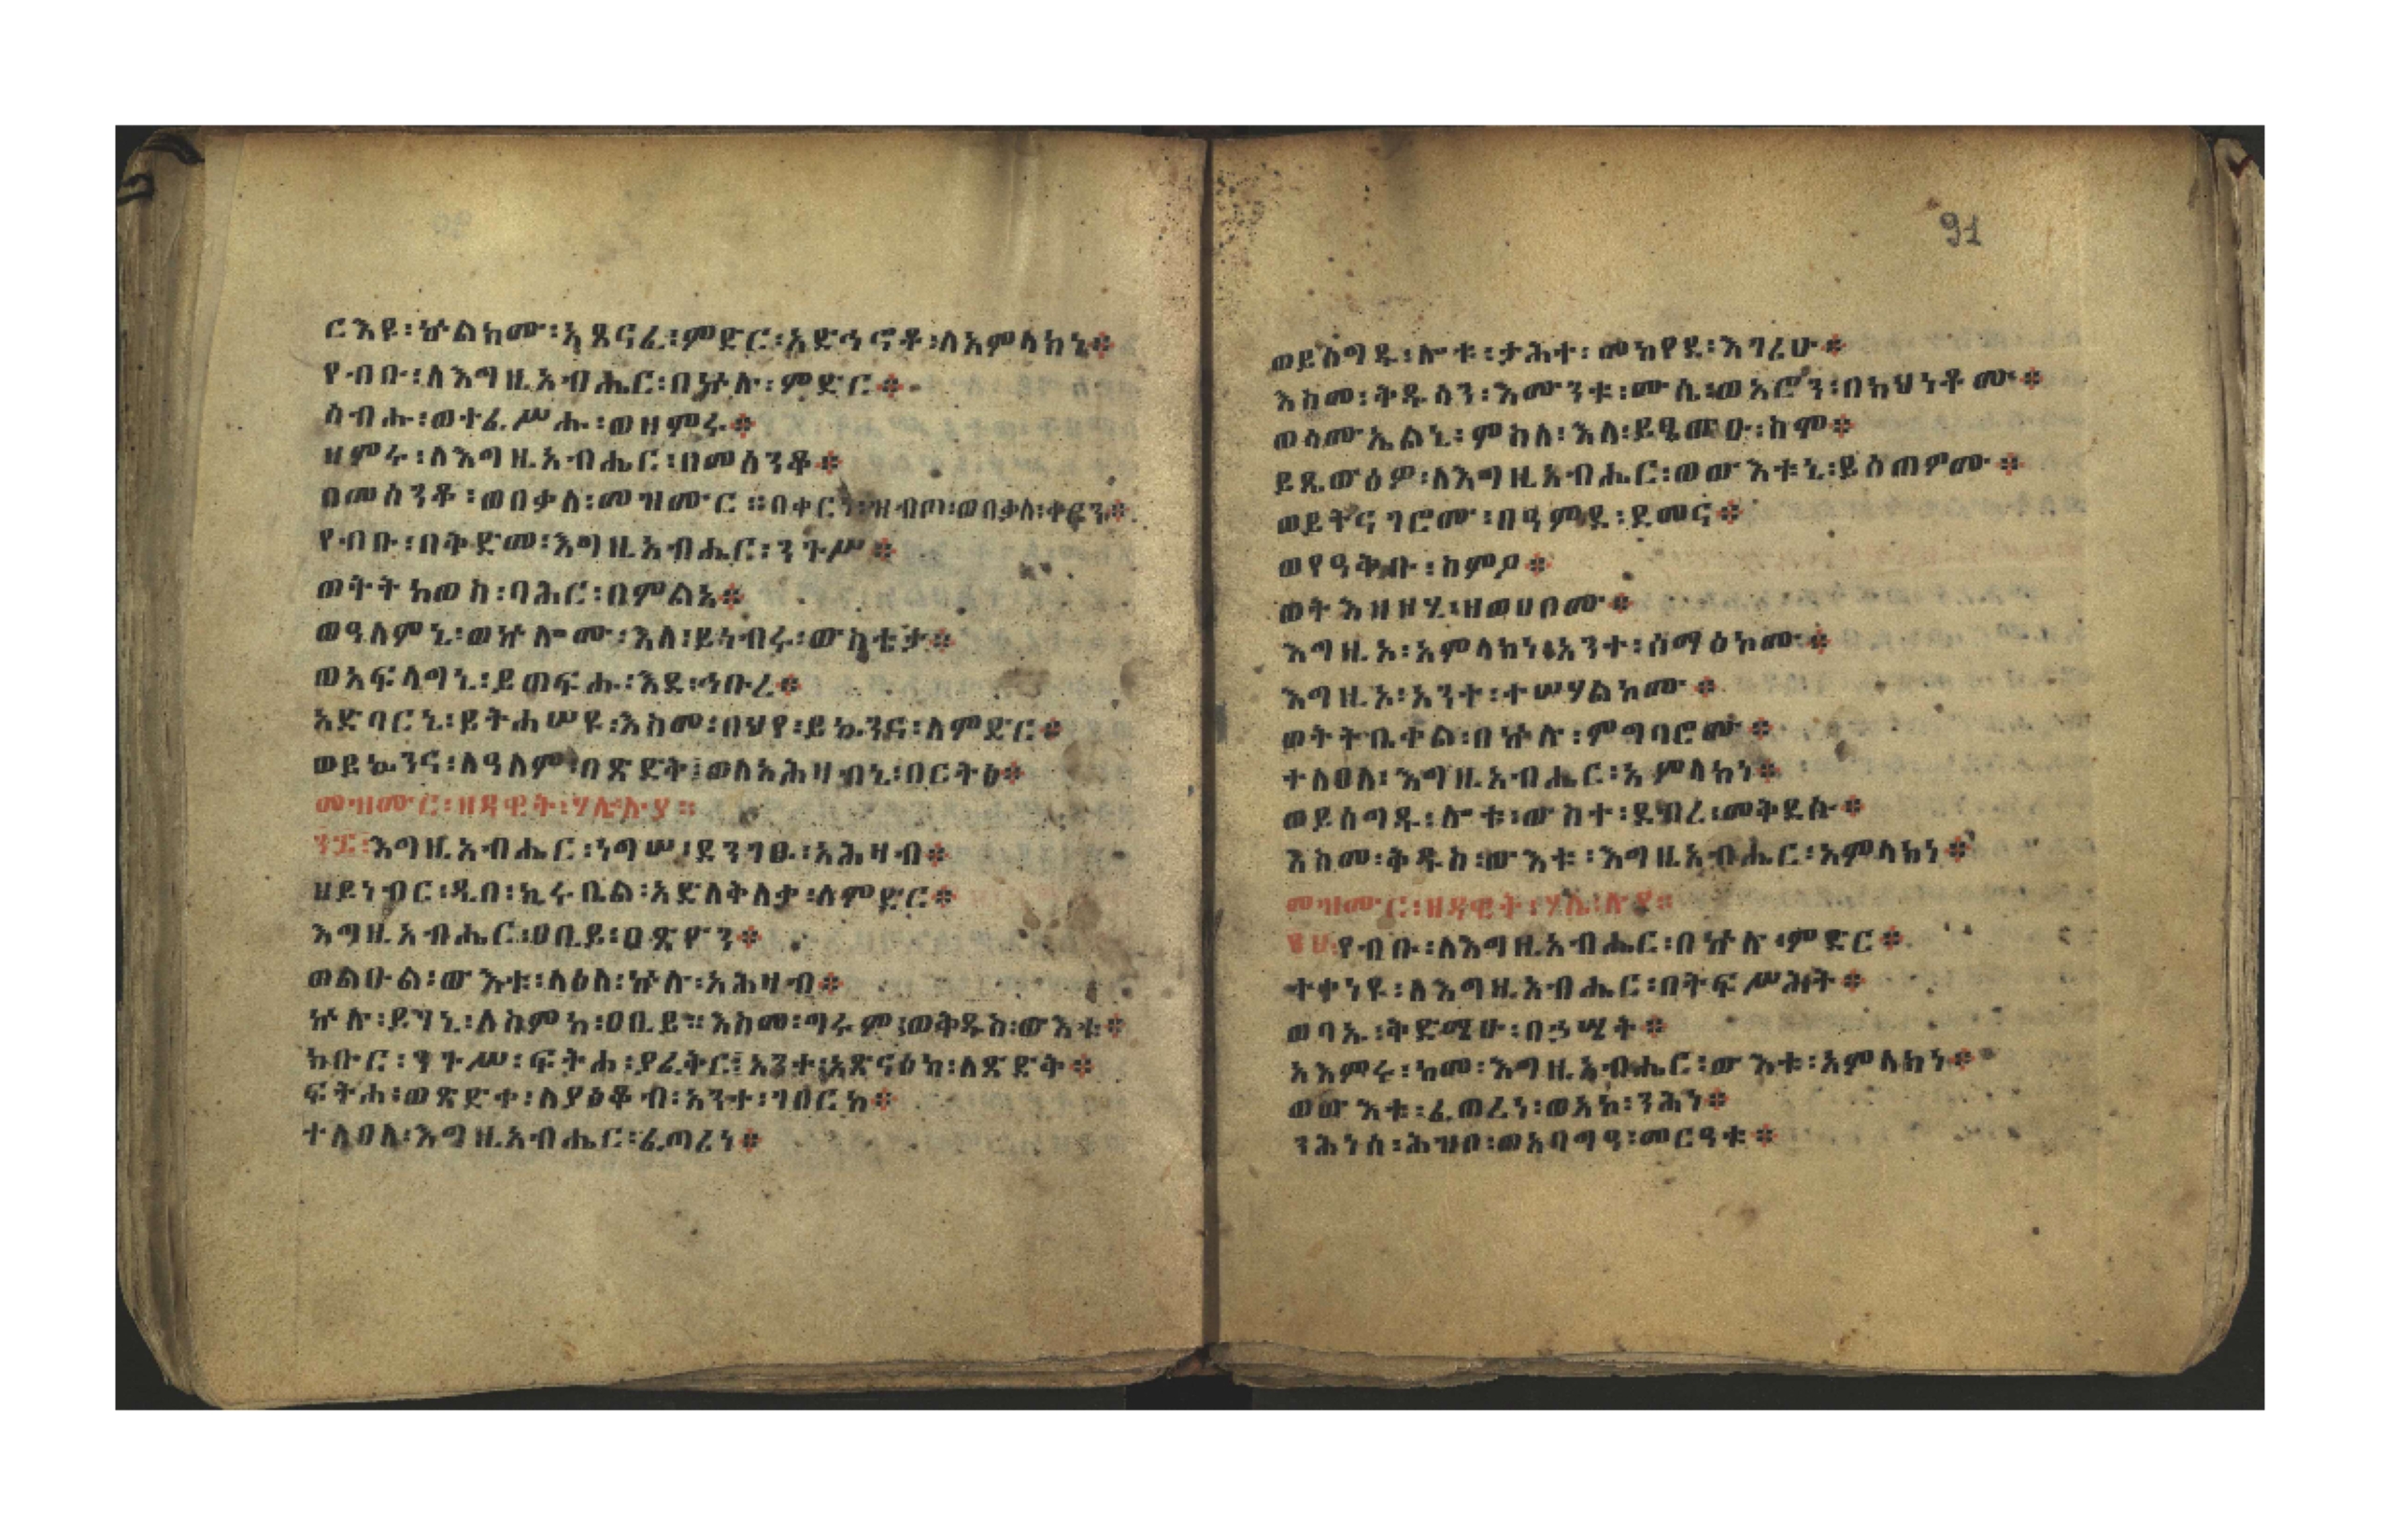 ርእዩ፡ኵልክሙ፡አጽናፈ፡ምድር፡አድኅኖቶ፡ለአምላክነ፨
የብቡ፡ለእግዚአብሔር፡በኵሉ፡ምድር፨
ሰብሑ፡ወተፈሥሑ፡ወዘምሩ፨
ዘምሩ፡ለእግዚአብሔር፡በመሰንቆ፨
በመሰንቆ፡ወበቃለ፡መዝሙር።በቀርነ፡ዝብጦ፡ወበቃለ፡ቀርን፨
የብቡ፡በቅድመ፡እግዚአብሔር፡ንጉሥ፨
ወትትከወክ፡ባሕር፡በምልኣ፨
ወዓለምኒ፡ወኵሎሙ፡እለ፡ይነብሩ፡ውስቴታ፨
ወአፍላግኒ፡ይጠፍሑ፡እደ፡ኅቡረ፨
አድባርኒ፡ይትሐሠዩ፡እስመ፡በህየ፡ይኴንና፡ለምድር፨
ወይኴንና፡ለዓለም፡በጽድቅ፤ወለአሕዛብኒ፡በርትዕ፨
መዝሙር፡ዘዳዊት፡ሃሌሉያ።
፺፰፡እግዚአብሔር፡ነግሠ፡ደንገፁ፡አሕዛብ፨
ዘይነብር፡ዲበ፡ኪሩቤል፡አድለቅለቃ፡ለምድር፨
እግዚአብሔር፡ዐቢይ፡በጽዮን፨
ወልዑል፡ውእቱ፡ላዕለ፡ኵሉ፡አሕዛብ፨
ኵሉ፡ይግኒ፡ለስምከ፡ዐቢይ።እስመ፡ግሩም፤ወቅዱስ፡ውእቱ፨
ክቡር፡ንጉሥ፡ፍትሐ፡ያፈቅር፤አንተ፡አጽናዕከ፡ለጽድቅ፨
ፍትሐ፡ወጽድቀ፡ለያዕቆብ፡አንተ፡ገበርከ፨
ተለዐለ፡እግዚአብሔር፡ፈጣሪነ፨
91
ወይሰግዱ፡ሎቱ፡ታሕተ፡መከየደ፡እገሪሁ፨
እስመ፡ቅዱሳን፡እሙንቱ፡ሙሴ፡ወአሮን፡በክህነቶሙ፨
ወሳሙኤልኒ፡ምስለ፡እለ፡ይጼውዑ፡ስሞ፨
ይጼውዕዎ፡ለእግዚአብሔር፡ወውእቱኒ፡ይሰጠዎሙ፨
ወይትናገሮሙ፡በዓምደ፡ደመና፨
ወየዓቅቡ፡ስምዖ፨
ወትእዛዞሂ፡ዘወሀቦሙ፨
እግዚኦ፡አምላክነ፡አንተ፡ሰማዕኮሙ፨
እግዚኦ፡አንተ፡ተሣሃልኮሙ፨
ወትትቤቀል፡በኵሉ፡ምግባሮሙ፨
ተለዐለ፡እግዚአብሔር፡አምላክነ፨
ወይሰግዱ፡ሎቱ፡ውስተ፡ደብረ፡መቅደሱ፨
እስመ፡ቅዱስ፡ውእቱ፡እግዚአብሔር፡አምላክነ፨
መዝሙር፡ዘዳዊት፡ሃሌሉያ።
የብቡ፡ለእግዚአብሔር፡በኵሉ፡ምድር፨
ተቀነዩ፡ለእግዚአብሔር፡በትፍሥሕት፨
ወባኡ፡ቅድሜሁ፡በኃሤት፨
አእምሩ፡ከመ፡እግዚአብሔር፡ውእቱ፡አምላክነ፨
ወውእቱ፡ፈጠረነ፡ወአኮ፡ንሕነ፨
ንሕነሰ፡ሕዝቡ፡ወአባግዓ፡መርዔቱ፨